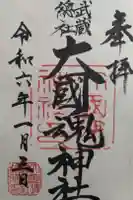 奉拝
武蔵
総社
大國魂神社
令和六年一月三日